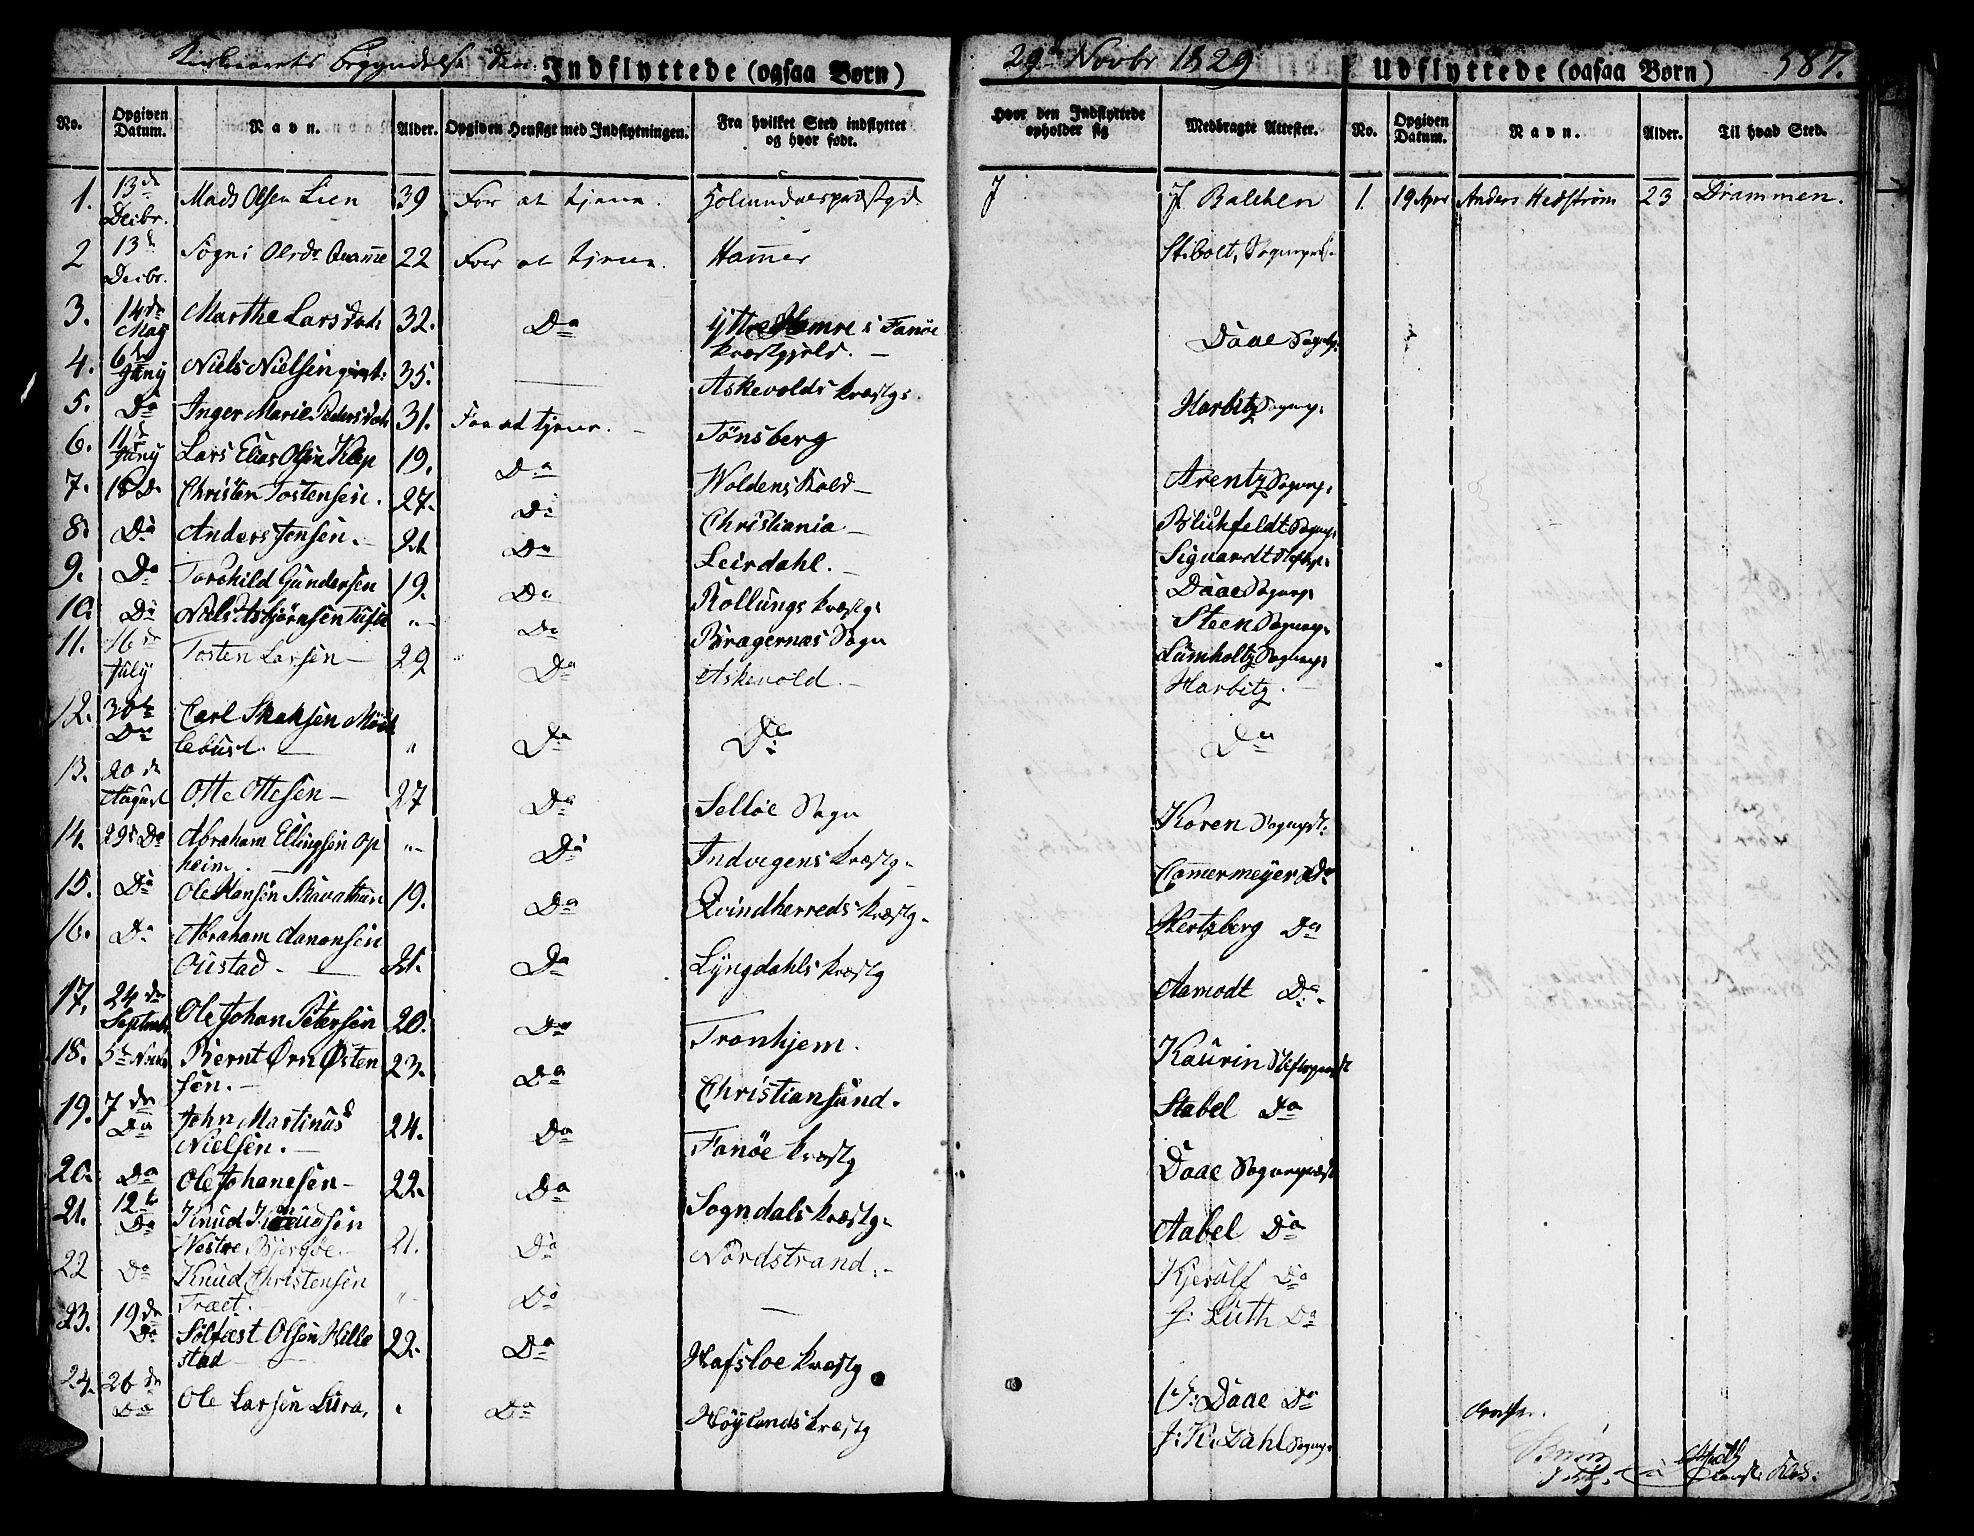 Kirkeaarets Begyndelse den 29de Novbr 1829
587.
Indflyttede (ogsaa Børn)
Udflyttede (ogsaa Børn)
No. Opgiven Datum. Navn. Alder. Opgiven Hensigt med Indflytningen. Fra hvilket Sted indflyttet og hvor født. Hvor den Indflyttede opholder sig Medbragte Attester. No. Opgiven Datum. Navn. Alder. Til hvad Sted.
1. 13de Decbr. Mads Olsen Lien 39 For at tjene. J. Balchen 1. 19 Apr Anders Hedstrøm 23 Drammen.
2 13de Decbr. 22 For at tjene. Hamer Stibolt, Sognepr.
3. 14de May Marthe Larsdatr 32. Do Yttre Hemre i Fanøe Præstgjeld. Daae Sognep.
4. 6te Juny Niels Nielsen 35. Askevolds Præstg: Harbitz Sognep:
5. Do Inger Marie Pedersdatr 31. For at tjene. Tönsberg Arentz Sognep:
6. 11te Juny Lars Elias Olsen Klep 19. Do Woldens Kald Blichfeldt Sognep:
7. 18 Do Christen Tostensen. 27. Do Christiania Sigvardt Stiftsp:
8. Do Anders Jensen. 21 Do Leirdahl. Daae Sognep:
9. Do Torchild Gundersen 19. Do Rollungs Præstg: Steen Sognep:
10. Do Niels Asbjörnsen Do Bragernæs Sogn Lumholtz Sognep:
11. 16de July Tosten Larsen 29 Do Askevold. Harbitz.
12. 30te Do Carl Do Do Do
13. 20de August Otte Ottesen 27 Do Selløe Sogn Koren Sognepst.
14. 29de Do Abraham Ellingsen Opheim Do Indvigens Præstg. Camermeyer Do
15. Do Ole Hansen 19. Do Qvindherreds Præstg. Hertzberg Do
16. Do Abraham 21. Do Lyngdahls Præstg Aamodt Do
17. 24de Septembr Ole Johan Petersen 20. Do Tronhjem. Kaurin Stiftsprovst
18. 5te Bernt Ørn Østensen. 23. Do Christiansund. Stabel Do
19. 7de Do John Martinus Nielsen. 24. Do Fanöe Præstg Daae Sognepræst
20. Do Ole Johanesen 22. Do Sogndals Præstg. Aabel Do
21. 12te Do Knud Knudsen Westre Bjergøe. 21. Do Nordstrand. Kjerulf Do
22 Do Knud Christensen Træet. Do J: Luth Do
23. 19de Do Solfæst Olsen Hillestad 22. Do Hafsloe Præstg J: Daae Do
24. 26de Do Ole Larsen Lura, Do Höylands Præstg J: K: Dahl Sognep: